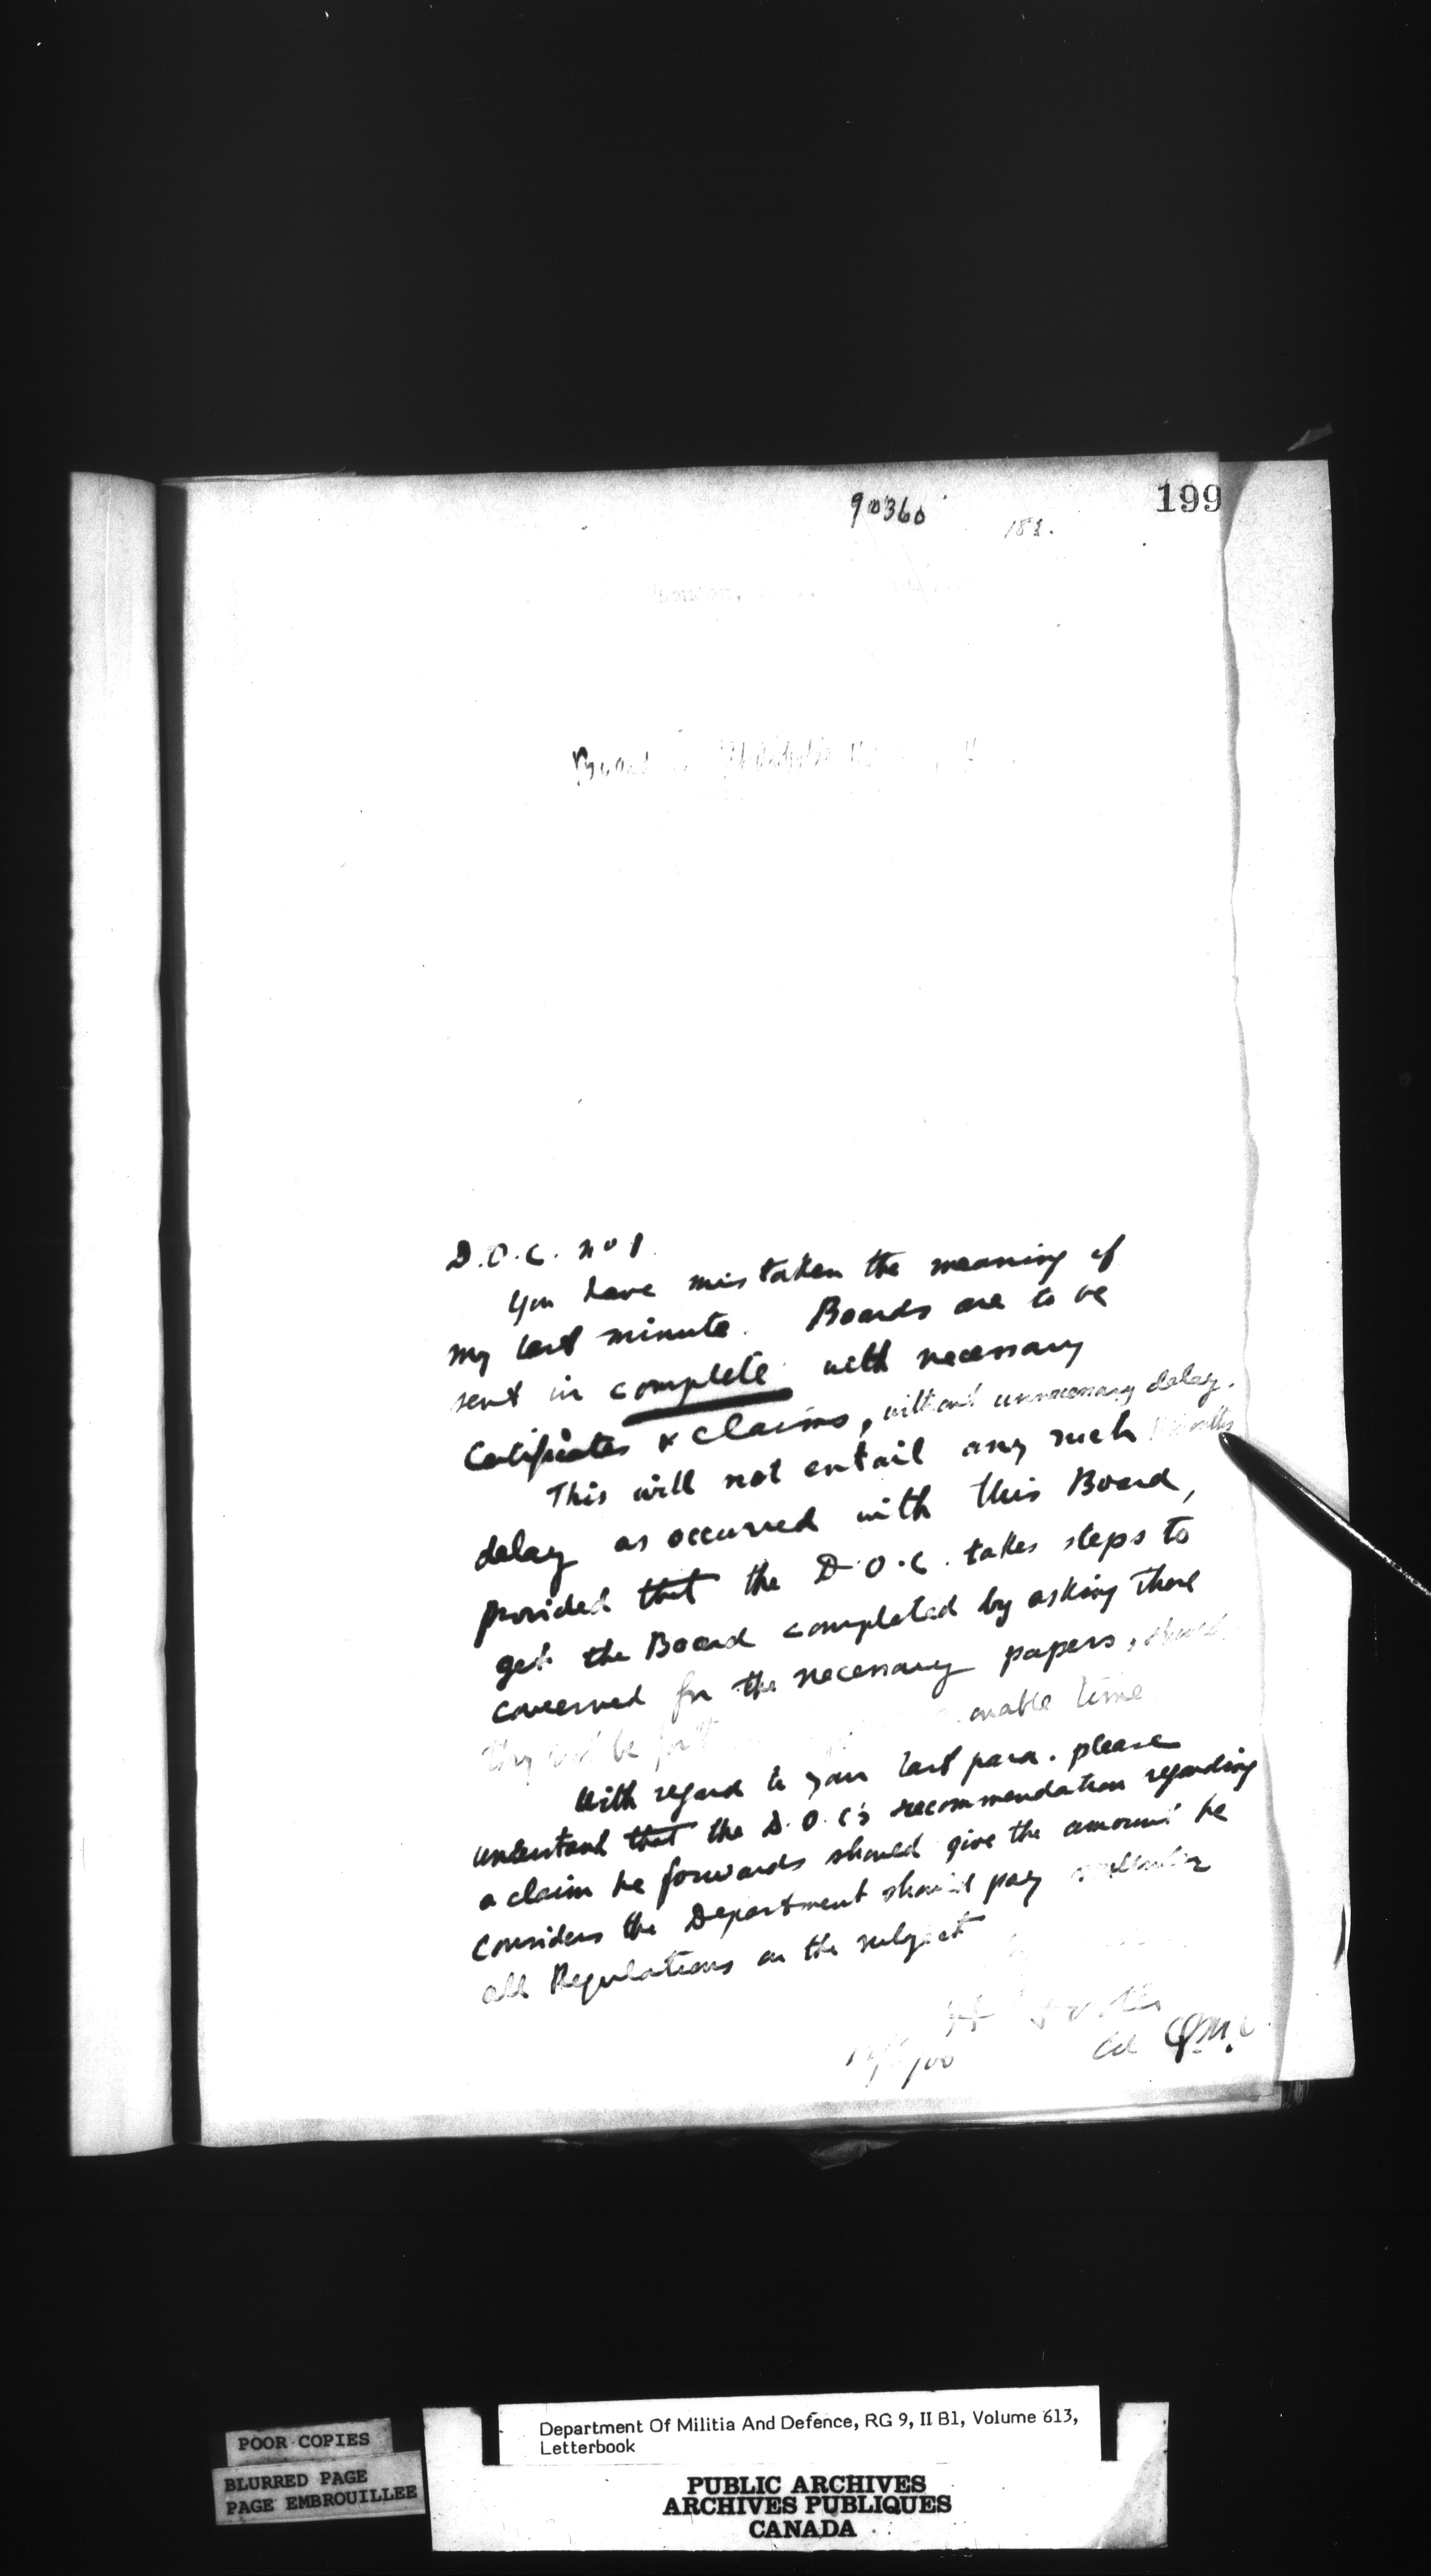 90360
199
188.
D.O.C. no 1.
You have mistaken the meaning of
my last minute. Boards are to be
sent in complete with necessary
Certificates & claims, without unnecessary delay.
This will not entail any such
delay as occurred with this Board,
provided that the D.O.C. takes steps to
get the Board completed by asking those
concerned for the necessary papers, should
they not be
time
With regard to your last para. please
understand that the D.O.C's recommendation regarding
a claim he forwards should give the amount he
considers the Department should pay under
all Regulations on the subject
Col QMG
POOR COPIES
BLURRED PAGE
PAGE EMBROUILLEE
Department Of Militia And Defence, RG 9, II B1, Volume 613,
Letterbook
PUBLIC ARCHIVES
ARCHIVES PUBLIQUES
CANADA